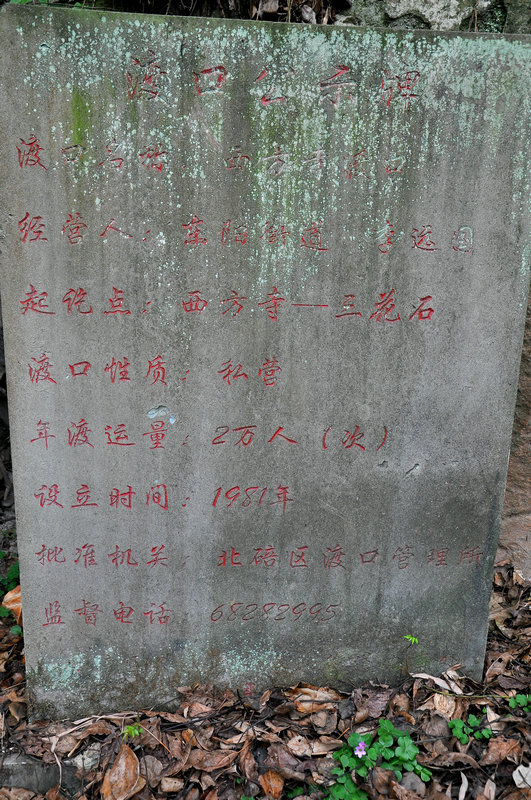 渡口公示牌
渡口名称：西方寺渡口
经营人：东阳街道 李运国
起讫点：西方寺——三花石
渡口性质：私营
年渡运量：2万人（次）
设立时间：1981年
批准机关：北碚区渡口管理所
监督电话：68282995